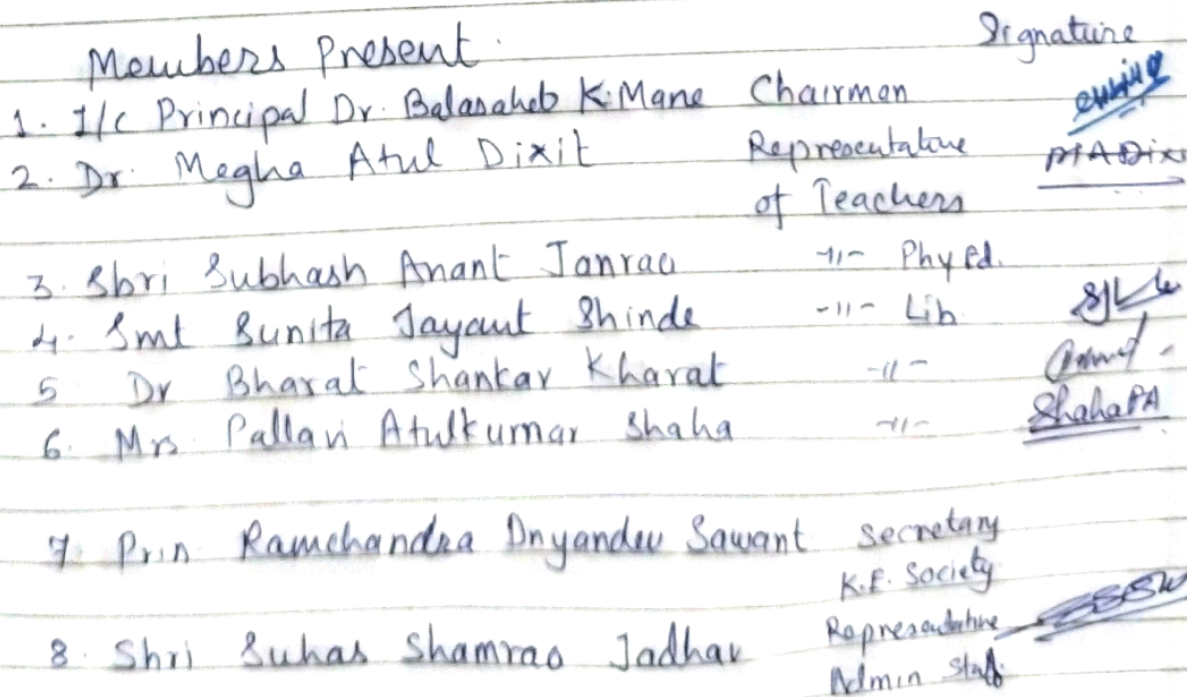 Members Present. Signature
1. I/c Principal Dr. Balasaheb K. Mane Chairman
2. Dr. Megha Atul Dixit Representative MADix
of Teachers
3. Shri Subhash Anant Janrao -11- Phy Ed.
4. Smt Sunita Jayant Shinde -11- Lib
5 Dr Bharat Shankar Kharat -11-
6. Mrs Pallavi Atulkumar Shaha -11- ShahaPA
7. Prin Ramchandra Dnyandeu Sawant Secretary
K.E. Society
8. Shri Suhas Shamrao Jadhav Representative
Admin Staff.